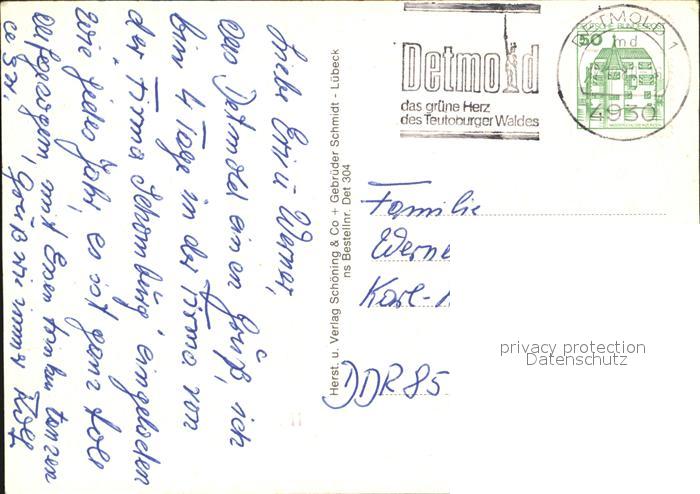 Liebe Erni u Werner,
aus Detmold einen Gruß, ich
bin 4 Tage in der Firma von
der Firma Schomburg eingeladen
wie jedes Jahr, es ist ganz tole
mit Euren tanzen
Grüß wie immer Rolf
Herst. u. Verlag Schöning & Co + Gebrüder Schmidt - Lübeck
ns Bestellnr. Det 304
Detmold
das grüne Herz
des Teutoburger Waldes
DETMOLD 1
md
4930
DEUTSCHE BUNDESPOST
50
Familie
Werne
Karl-
DDR 85
privacy protection
Datenschutz